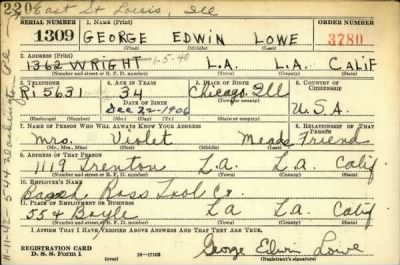 2201 East St Louis, Ill
SERIAL NUMBER 1. NAME (Print) ORDER NUMBER
1309 GEORGE EDWIN LOWE 3780
(First) (Middle) (Last)
2. ADDRESS (Print) 11-5-40
1362 WRIGHT L.A. L.A. CALIF
(Number and street or R. F. D. number) (Town) (County) (State)
3. TELEPHONE 4. AGE IN YEARS 5. PLACE OF BIRTH 6. COUNTRY OF CITIZENSHIP
Ri 5631 34 Chicago, Ill
DATE OF BIRTH (Town or county)
Dec 22-1906 U.S.A.
(Exchange) (Number) (Mo.) (Day) (Yr.) (State or country)
7. NAME OF PERSON WHO WILL ALWAYS KNOW YOUR ADDRESS 8. RELATIONSHIP OF THAT PERSON
Mrs. Violet Meads Friend
(Mr., Mrs., Miss) (First) (Middle) (Last)
9. ADDRESS OF THAT PERSON
1119 Trenton L.A. L.A. Calif.
(Number and street or R. F. D. number) (Town) (County) (State)
10. EMPLOYER'S NAME
Ross Tool Co.
11. PLACE OF EMPLOYMENT OR BUSINESS
55 & Boyle L.A. L.A. Calif
(Number and street or R. F. D. number) (Town) (County) (State)
I AFFIRM THAT I HAVE VERIFIED ABOVE ANSWERS AND THAT THEY ARE TRUE.
REGISTRATION CARD
D. S. S. Form 1 George Edwin Lowe
(Registrant's signature)
11-11-42-544 Washington